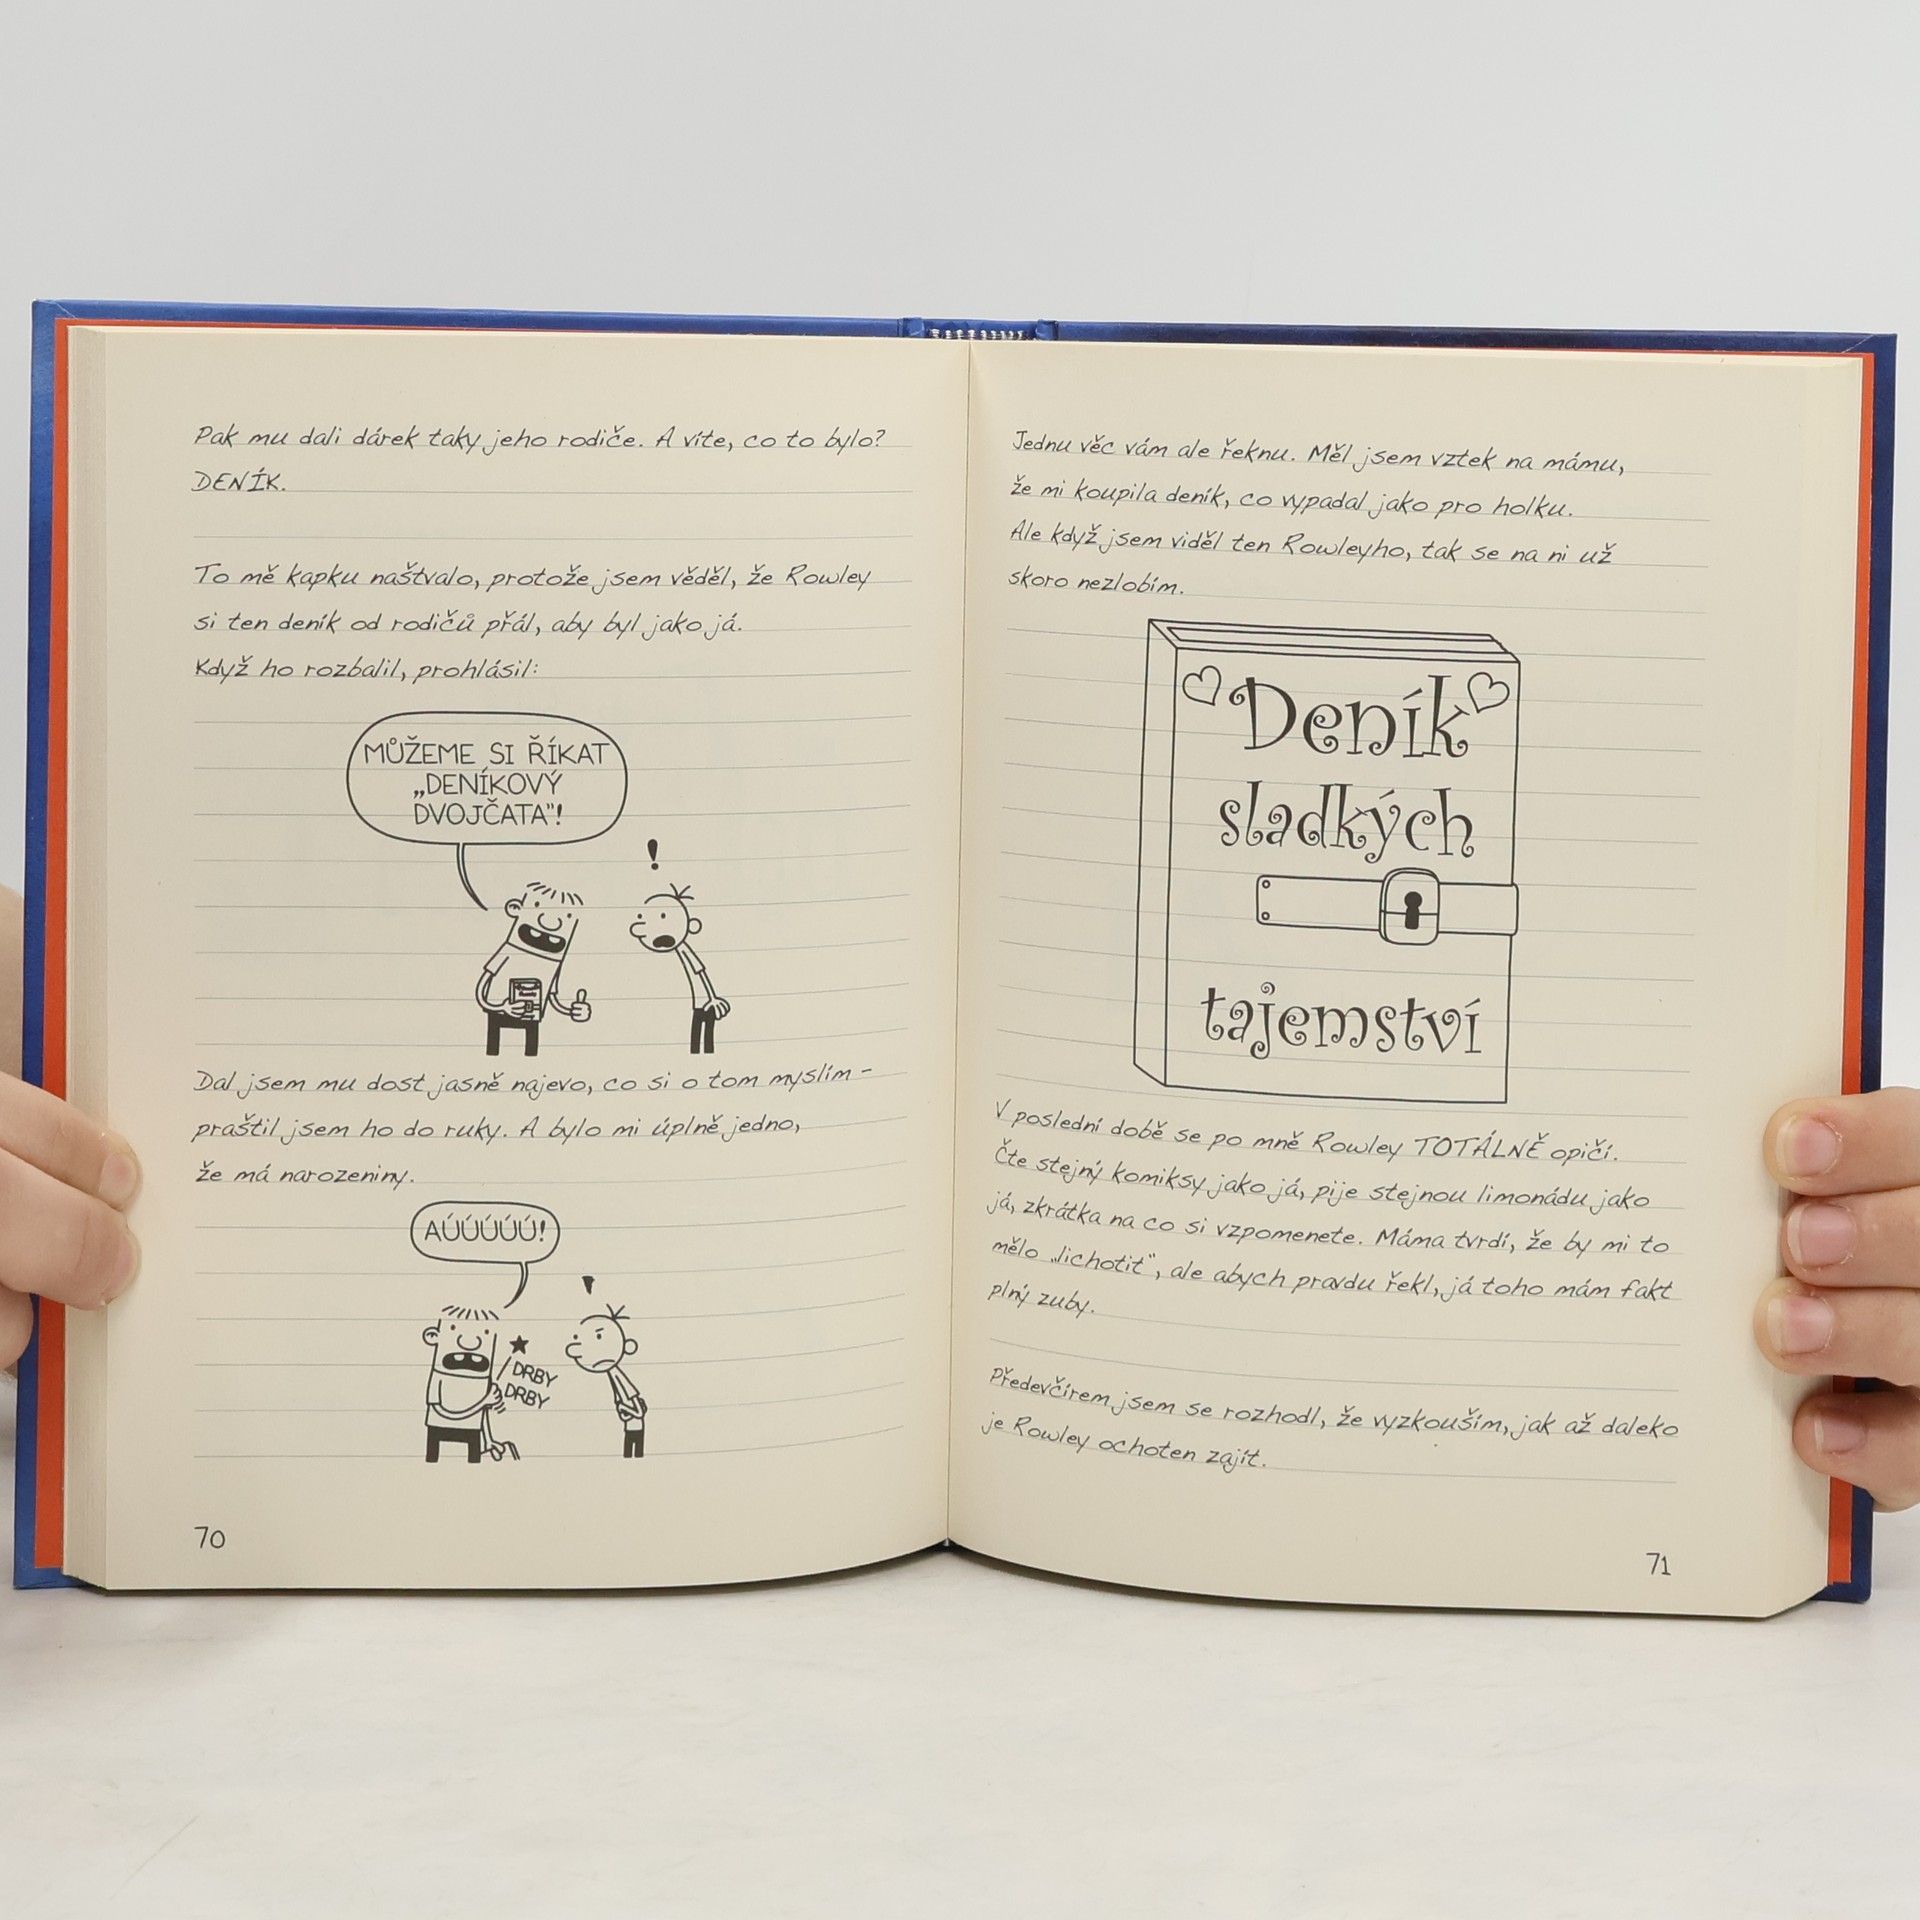 Pak mu dali dárek taky jeho rodiče. A víte, co to bylo?
DENÍK.
To mě kapku naštvalo, protože jsem věděl, že Rowley
si ten deník od rodičů přál, aby byl jako já.
Když ho rozbalil, prohlásil:
MŮŽEME SI ŘÍKAT
„DENÍKOVÝ
DVOJČATA"!
!
Dal jsem mu dost jasně najevo, co si o tom myslím –
praštil jsem ho do ruky. A bylo mi úplně jedno,
že má narozeniny.
AÚÚÚÚÚ!
DRBY
DRBY
70
Jednu věc vám ale řeknu. Měl jsem vztek na mámu,
že mi koupila deník, co vypadal jako pro holku.
Ale když jsem viděl ten Rowleyho, tak se na ni už
skoro nezlobím.
Deník
sladkých
tajemství
V poslední době se po mně Rowley TOTÁLNĚ opičí.
Čte stejný komiksy jako já, pije stejnou limonádu jako
já, zkrátka na co si vzpomenete. Máma tvrdí, že by mi to
mělo „lichotit", ale abych pravdu řekl, já toho mám fakt
plný zuby.
Předevčírem jsem se rozhodl, že vyzkouším, jak až daleko
je Rowley ochoten zajít.
71